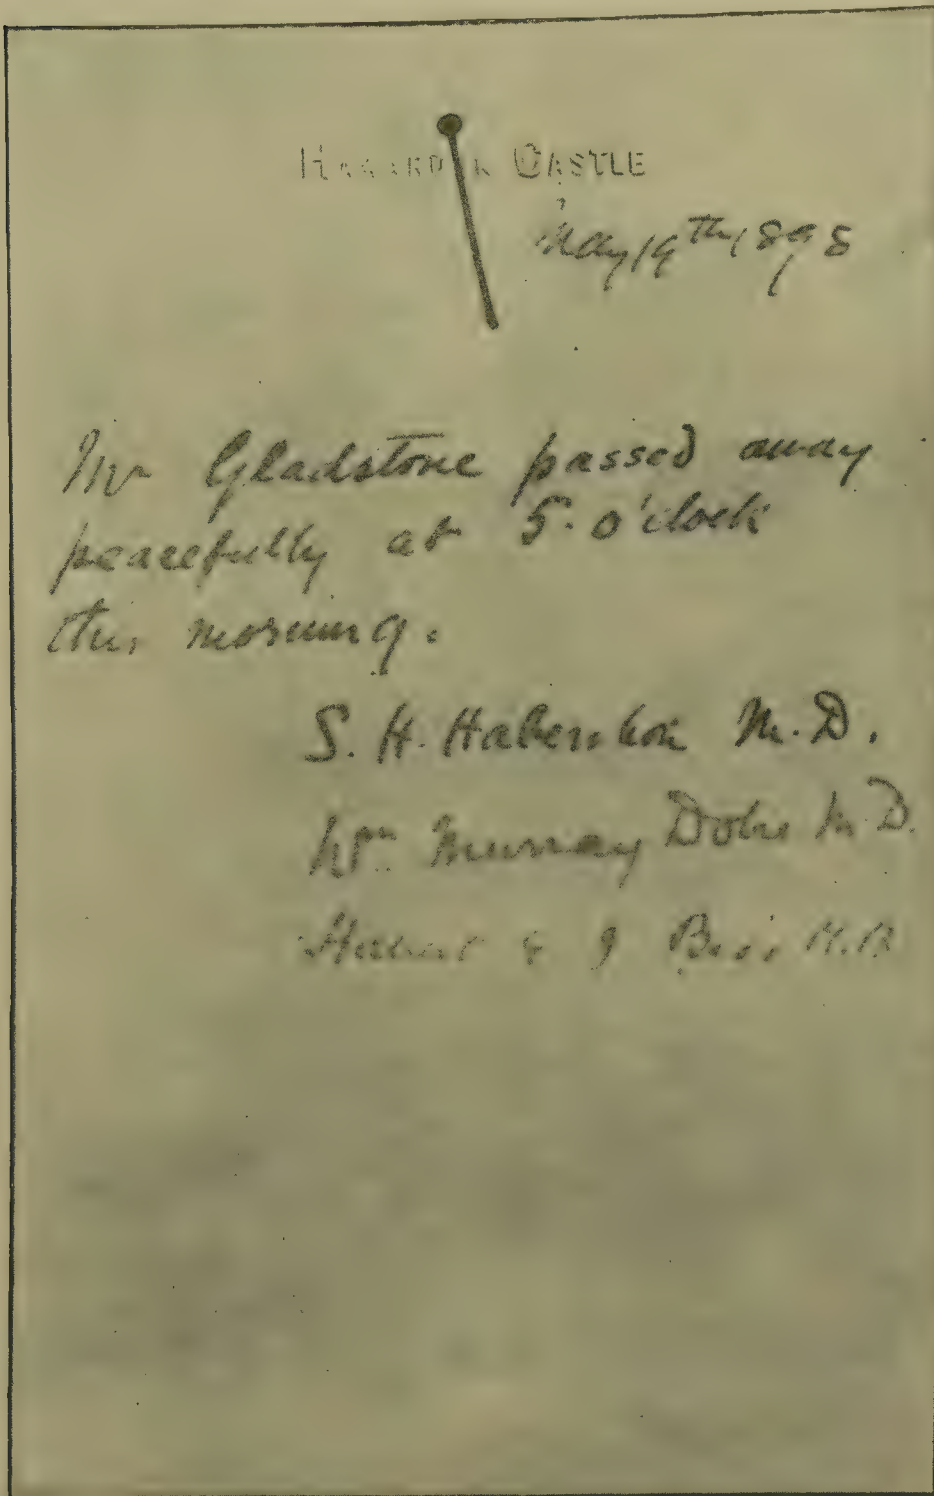 HAWARDEN CASTLE
May 19th, 1898
Mr Gladstone passed away
peacefully at 5. o'clock
this morning.
S. H. Habershon M.D.
Wm Murray Dobie M.D.
Herbert E J Biss M.B.